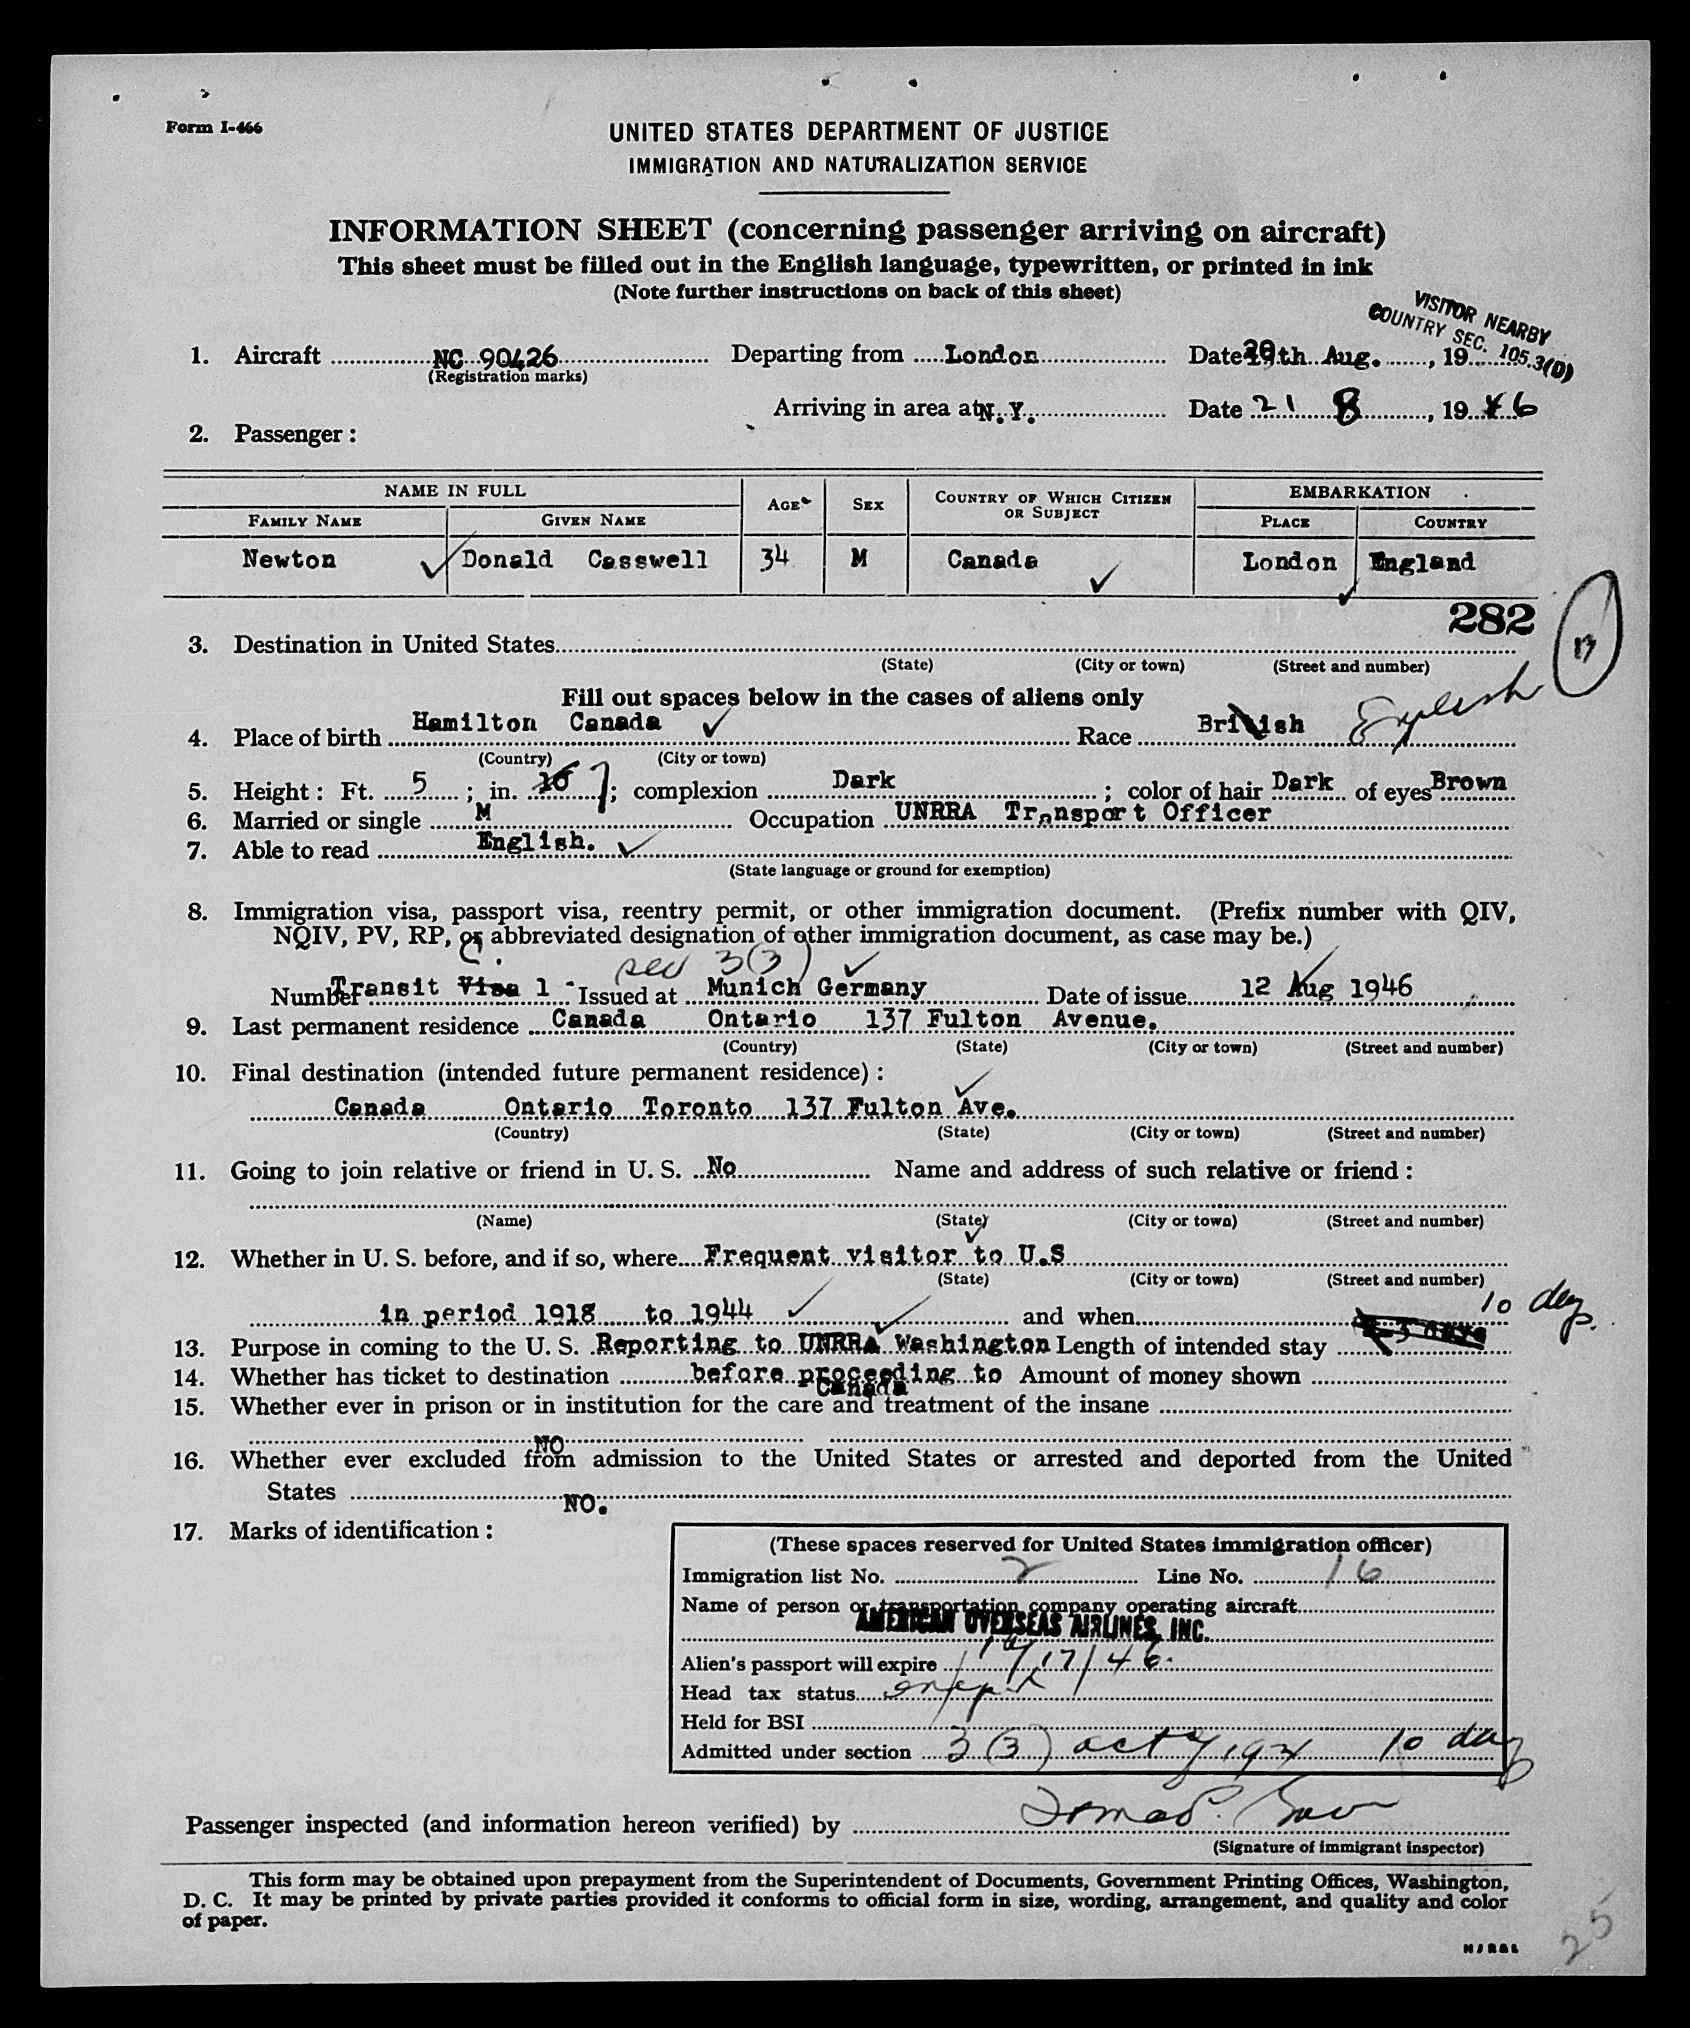 Form I-466
UNITED STATES DEPARTMENT OF JUSTICE
IMMIGRATION AND NATURALIZATION SERVICE
INFORMATION SHEET (concerning passenger arriving on aircraft)
This sheet must be filled out in the English language, typewritten, or printed in ink
(Note further instructions on back of this sheet)
VISITOR NEARBY
COUNTRY SEC. 105.3(D)
1. Aircraft NC 90426 Departing from London Date 20th Aug. , 19
(Registration marks)
Arriving in area at N.Y. Date 21 8 , 19 46
2. Passenger :
NAME IN FULL AGE SEX COUNTRY OF WHICH CITIZEN OR SUBJECT EMBARKATION
FAMILY NAME GIVEN NAME PLACE COUNTRY
Newton Donald Casswell 34 M Canada London England
282
13
3. Destination in United States
(State) (City or town) (Street and number)
Fill out spaces below in the cases of aliens only
4. Place of birth Hamilton Canada Race British English
(Country) (City or town)
5. Height : Ft. 5 ; in. 10 7 ; complexion Dark ; color of hair Dark of eyes Brown
6. Married or single M Occupation UNRRA Transport Officer
7. Able to read English.
(State language or ground for exemption)
8. Immigration visa, passport visa, reentry permit, or other immigration document. (Prefix number with QIV,
NQIV, PV, RP, or abbreviated designation of other immigration document, as case may be.)
sec 3(3)
Number Transit Visa 1 Issued at Munich Germany Date of issue 12 Aug 1946
9. Last permanent residence Canada Ontario 137 Fulton Avenue.
(Country) (State) (City or town) (Street and number)
10. Final destination (intended future permanent residence) :
Canada Ontario Toronto 137 Fulton Ave.
(Country) (State) (City or town) (Street and number)
11. Going to join relative or friend in U. S. No Name and address of such relative or friend :
(Name) (State) (City or town) (Street and number)
12. Whether in U. S. before, and if so, where Frequent visitor to U.S
(State) (City or town) (Street and number)
in period 1918 to 1944 and when 10 days.
13. Purpose in coming to the U. S. Reporting to UNRRA Washington Length of intended stay
14. Whether has ticket to destination before proceeding to Amount of money shown
Canada
15. Whether ever in prison or in institution for the care and treatment of the insane
NO
16. Whether ever excluded from admission to the United States or arrested and deported from the United
States NO.
17. Marks of identification :
(These spaces reserved for United States immigration officer)
Immigration list No. 2 Line No. 16
Name of person or transportation company operating aircraft
AMERICAN OVERSEAS AIRLINES, INC.
Alien's passport will expire /17/46.
Head tax status
Held for BSI
Admitted under section 3 (3) act of 1924 10 days
Passenger inspected (and information hereon verified) by
(Signature of immigrant inspector)
This form may be obtained upon prepayment from the Superintendent of Documents, Government Printing Offices, Washington,
D. C. It may be printed by private parties provided it conforms to official form in size, wording, arrangement, and quality and color
of paper.
25